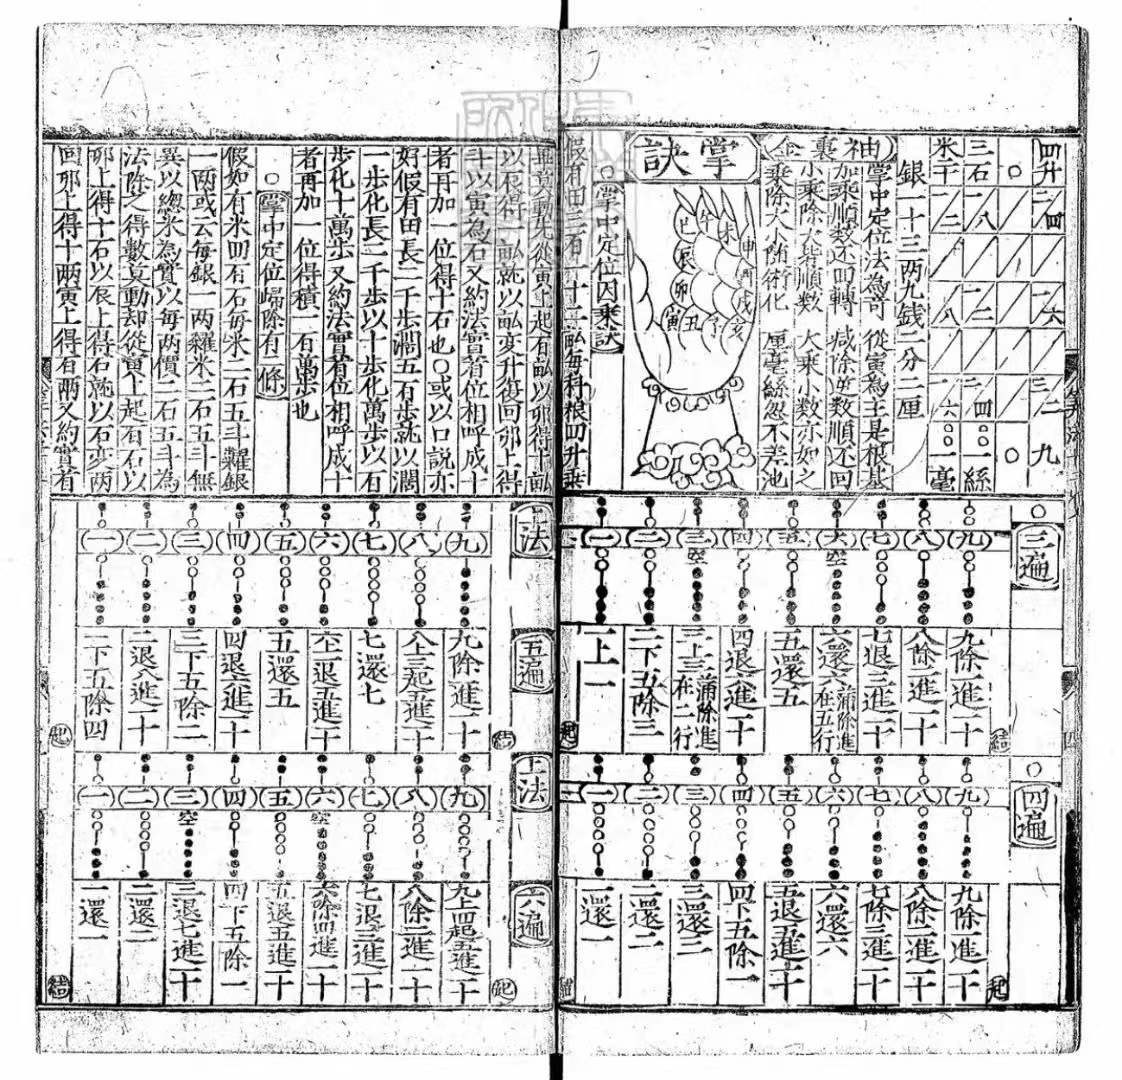 四升
三石
米十
九
一絲
一毫
銀一十三兩九錢一分二厘
袖裏金
掌中定位法為奇 從寅為主是根基
加乘順數还回轉 咸除逆數順还回
小乘除大皆順數 大乘小數亦如之
厘毫絲忽不差池
掌訣
午
未
申
酉
戌
亥
巳
辰
卯
寅
丑
子
○掌中定位因乘訣
假有田三百二十二畝每科粮四升乗
以石得畝就以畝变升復回夘上得
斗以寅為石又約法實首位相呼成十
者再加一位得十石也○或以口説亦
好假有田長二千歩濶五百歩就以濶
一歩化長二千歩以十歩化萬歩以百
歩化十萬歩又約法實首位相呼成十
者再加一位得積一百萬歩也
○掌中定位歸除有二條
假如有米四百石每米二石五斗糶銀
一兩或云每銀一兩糴米二石五斗無
異以緫米為實以每兩價二石五斗為
法除之得數莫動却從寅上起百石以
夘上得十石以辰上得石就以石变兩
回夘上得十兩寅上得百兩又約實首
三遍
九 八 七 六 五 四 三 二 一
九除一進一十
八除二進一十
七退三進一十
六還六
五還五
四退六進一十
二下五除三
一上一
結
起
四遍
九 八 七 六 五 四 三 二 一
起
九除一進一十
八除二進一十
七除三進一十
六還六
五退五進一十
四下五除一
三還三
二還二
一還一
上法
五遍
九 八 七 六 五 四 三 二 一
結
九除一進一十
八上三起五進一十
七還七
五還五
四退六進一十
三下五除二
二退八進一十
一下五除四
起
上法
六遍
九 八 七 六 五 四 三 二 一
起
九上四起五進一十
八除二進一十
七退三進一十
六除四進一十
五退五進一十
四下五除一
三退七進一十
二還二
一還一
結